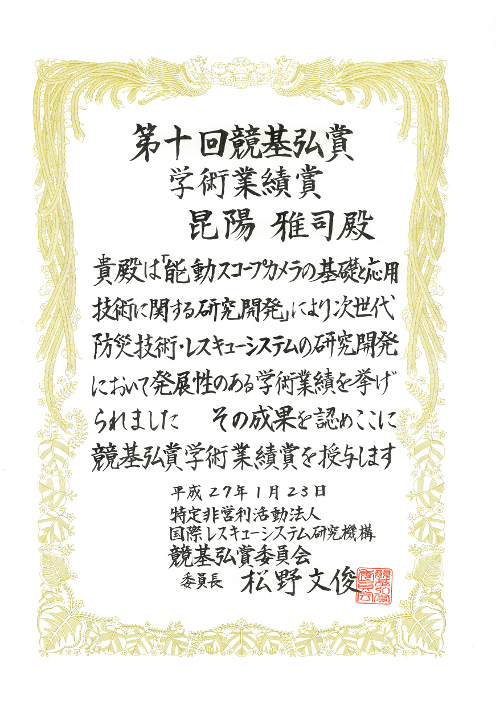 第十回競基弘賞
学術業績賞
昆陽 雅司殿
貴殿は「能動スコープカメラの基礎と応用
技術に関する研究開発」により次世代
防災技術・レスキューシステムの研究開発
において発展性のある学術業績を挙げ
られました その成果を認めここに
競基弘賞学術業績賞を授与します
平成27年1月23日
特定非営利活動法人
国際レスキューシステム研究機構
競基弘賞委員会
委員長 松野文俊